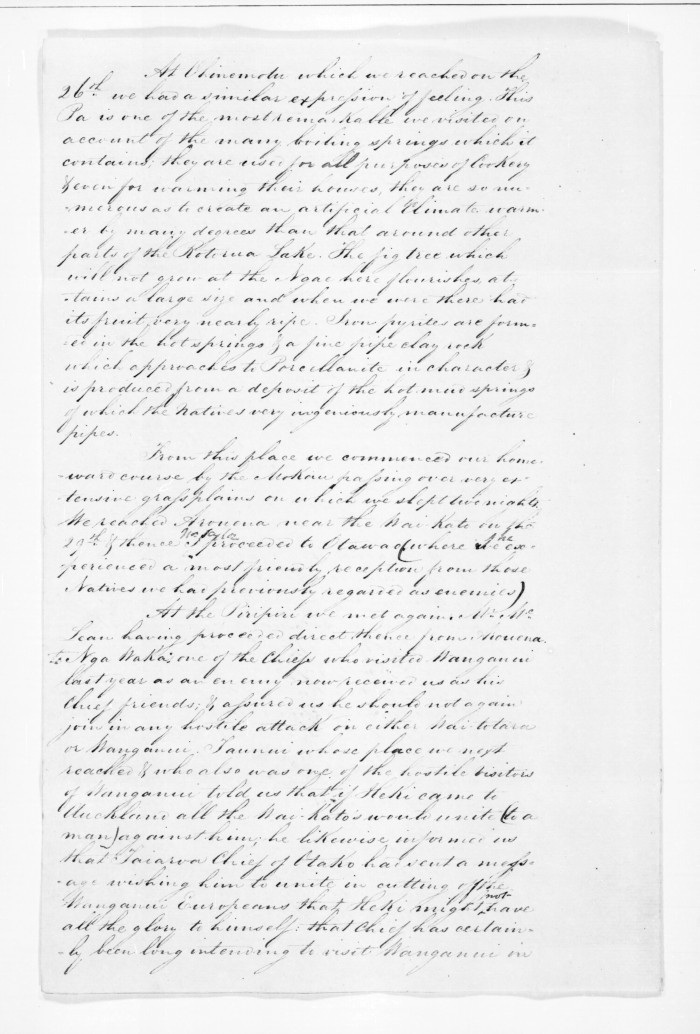 At Ohinemotu which we reached on the
26th. we had a similar expression of feeling. This
Pa is one of the most remarkable we visited on
account of the many boiling springs which it
contains; they are used for all purposes of Cookery
& even for warming their houses, they are so nu-
-merous as to create an artificial Climate warm-
er by many degrees than that around other
parts of the Rotorua Lake. The fig tree which
will not grow at the Ngae here flourishes, at-
-tains a large size and when we were there had
its fruit very nearly ripe. Iron pyrites are form-
ed in the hot springs & a fine pipe clay rock
which approaches to Porcellanite in character &
is produced from a deposit of the hot mud springs
of which the Natives very ingeniously manufacture
pipes.
From this place we commenced our home-
-ward course by the Mokau passing over very ex-
tensive grass plains on which we slept two nights.
We reached Arouena near the Wai-Kato on the
29th. & thence I proceeded to Otawao (where we ex-
-perienced a most friendly reception from those
Natives we had previously regarded as enemies)
At the Piripiri we met again, Mr. Mc
Lean having proceeded direct thence from Arouena.
Nga Waka, one of the Chiefs who visited Wanganui
last year as an enemy now received us as his
Chief friends; & assured us he should not again
join in any hostile attack on either Wai-totara
or Wanganui. Taunui whose place we next
reached & who also was one of the hostile visitors
of Wanganui told us that if Heki came to
Auckland all the Wai-Kato's would unite (to a
man) against him; he likewise informed us
that Taiaroa Chief of Otako had sent a mess-
-age wishing him to unite in cutting off the
Wanganui Europeans that Heki might not have
all the glory to himself: that Chief has certain-
-ly been long intending to visit Wanganui in